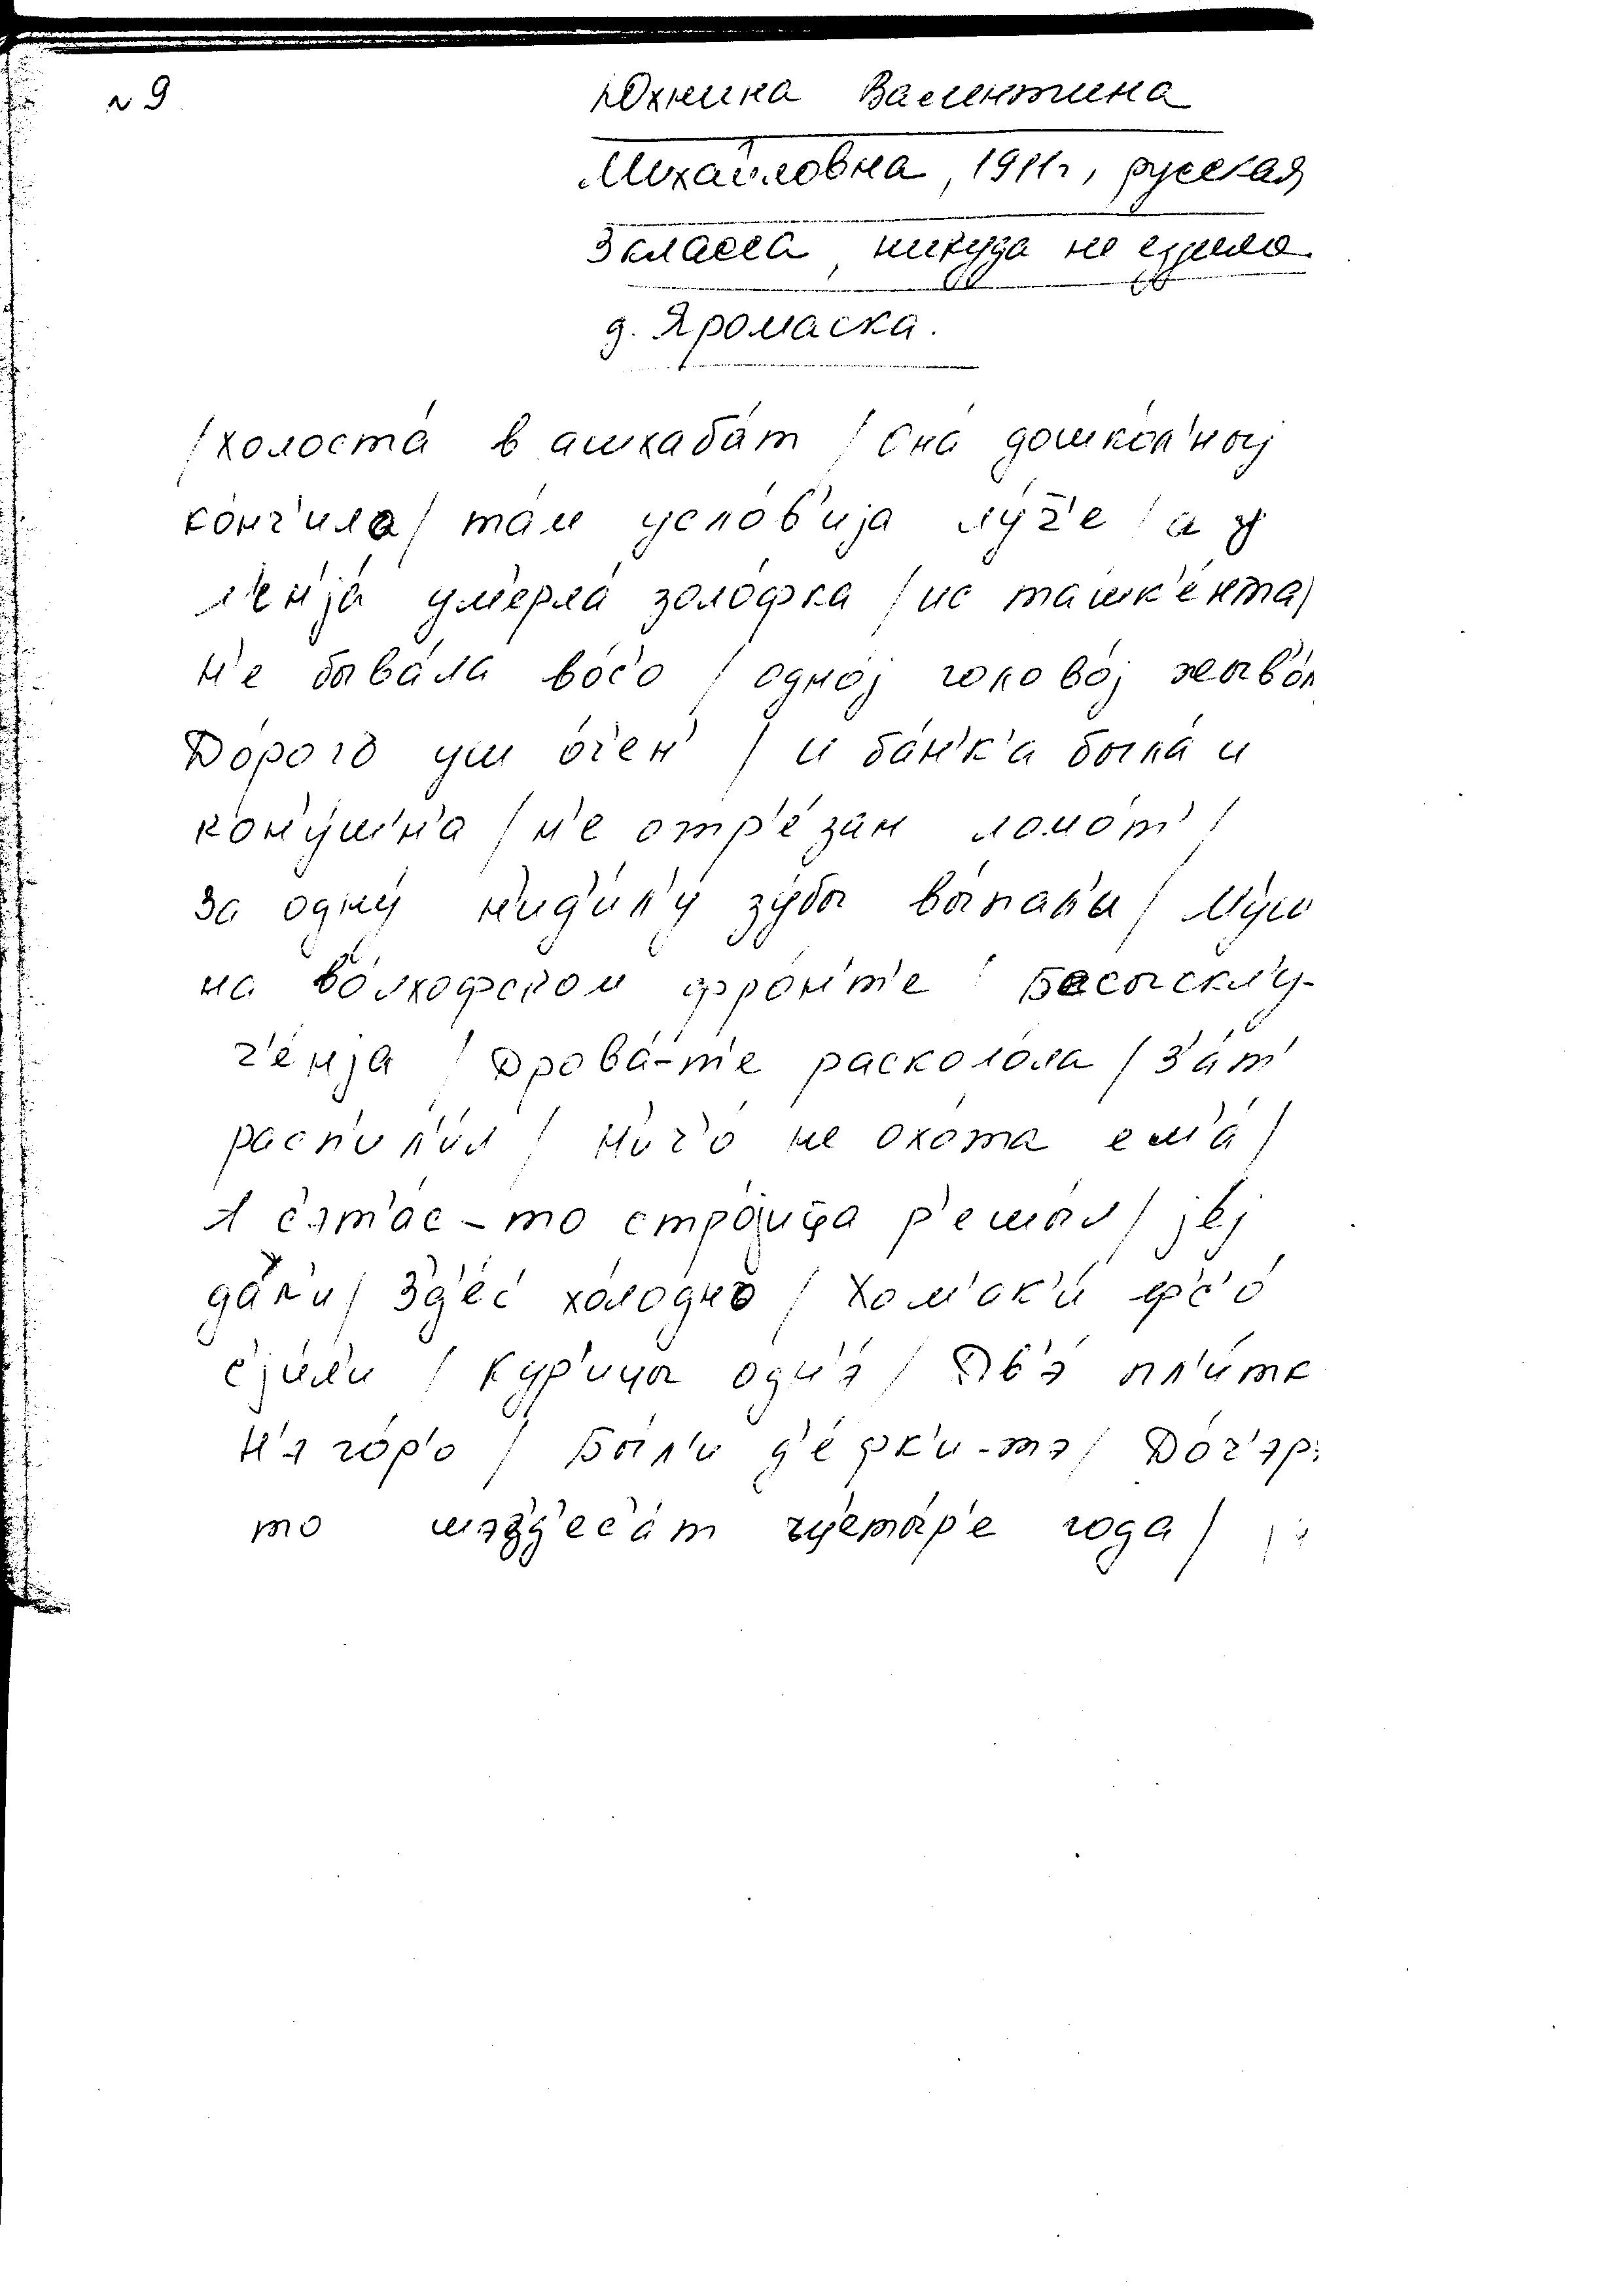 № 9
Юхнина Валентина
Михайловна, 1911г, русская
3 класса, никуда не ездила.
д. Яромаска.
/холоста́ в ашхаба́т / Она́ дошко́л'ној
ко́нч'ила / та́м усло́в'ија лу́ч̄'е / а у
м'ен'а́ ум'ерла́ золо́фка / ис ташк'е́нта/
н'е быва́ла во́с'о / одно́ј голово́ј жыв'о́м
До́рого уш о́ч'ен' / и ба́н'к'а была́ и
кон'у́ш'н'а / н'е отр'е́зан ломо́т' /
За одну́ н'ид'и́л'у зу́бы вы́пал'и / Му́ш
на во́лхофском фро́н'т'е / Бесыскл'у-
ч'е́нја / Дрова́-т'е расколо́ла / З'а́т'
расп'ил'и́л / Н'ич'о́ не охо́та ем'а́ /
А с'эт'а́с-то стро́јиц̄ца р'ешы́л / јеј
да́л'и / З'д'е́с' хо́лодно / Хом'ак'и́ фс'о́
с'ји́л'и / ку́р'ицы одн'э́ / Дв'э́ пл'и́тк
Н'э го́р'о / Бы́л'и д'е́фк'и-тэ / До́ч'эр'
то шэз'д'ес'а́т четы́р'е года /